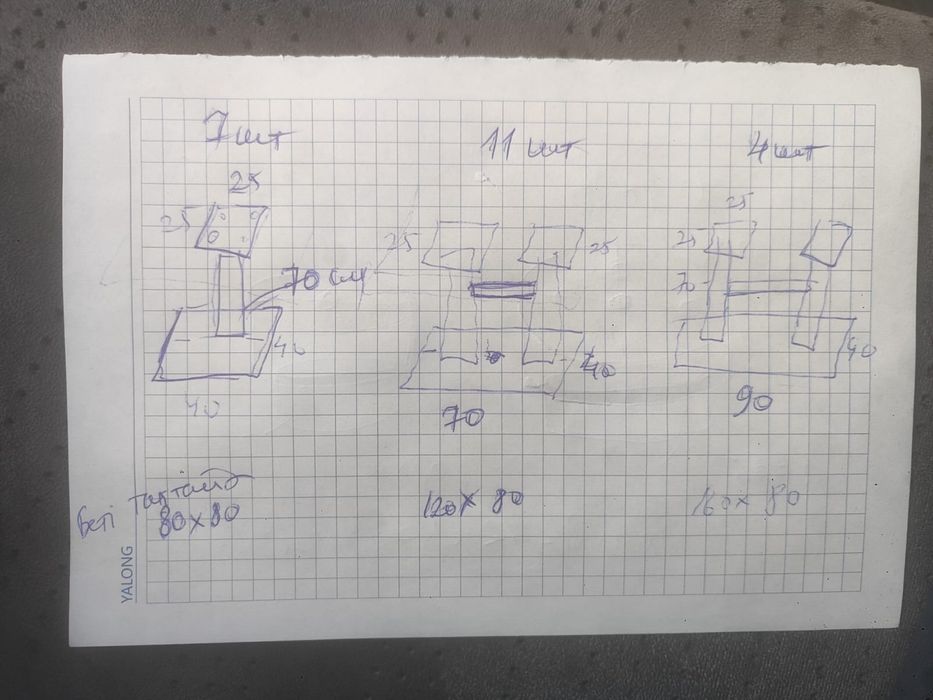 7 шт
25
25
70 см
40
40
11 шт
25
25
40
70
4 шт
25
25
70
40
90
беті тақтайд
80 x 80
120 x 80
160 x 80
YALONG